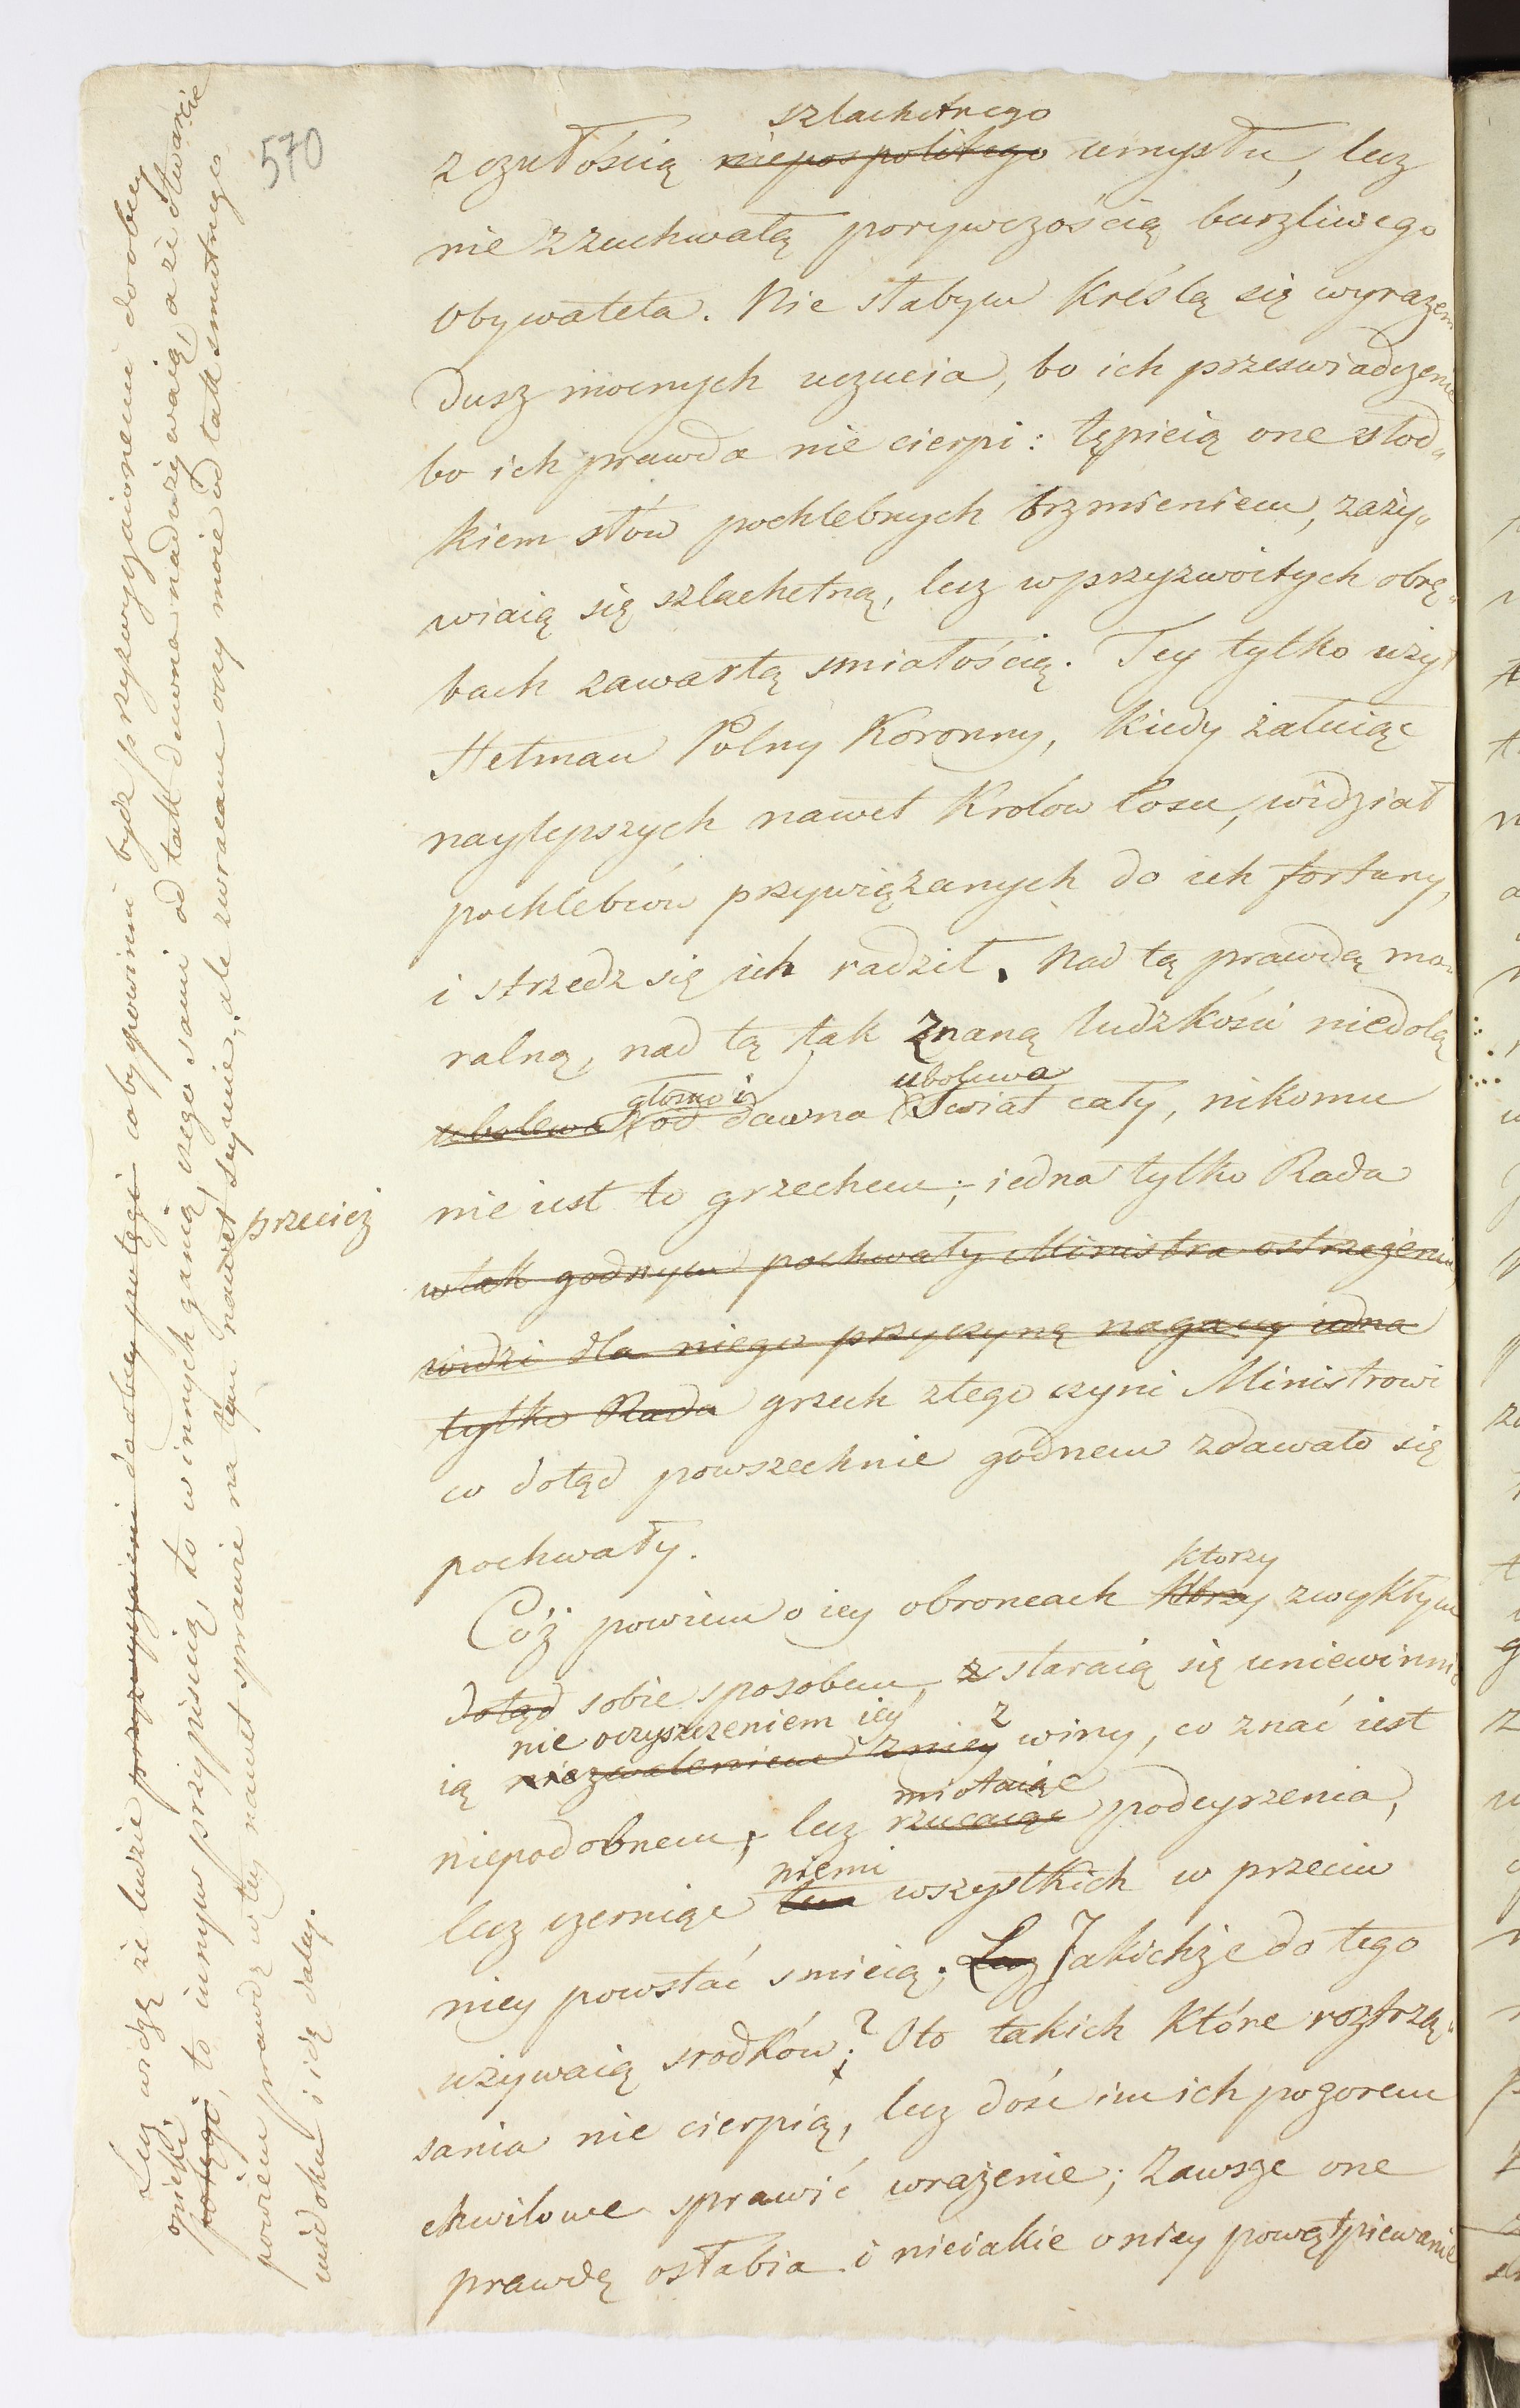 570
szlachetnego
z czułością niepospolitego umysłu, lecz
nie z zuchwałą porywczością burzliwego
Obywatela. Nie słabym kréślą się wyrazem
dusz mocnych uczucia, bo ich przeswiadczenie
bo ich prawda nie cierpi: tępieią one słod„
kiem słów pochlebnych brzmieniem, zaży„
wiaią się szlachetną, lecz w przyzwoitych obrę„
bach zawartą smiałością. Tey tylko użył
Hetman Polny Koronny, kiedy żałuiąc
naylepszych nawet Krolow losu, widział
pochlebców przywiązanych do ich fortuny,
i strzedz się ich radził. Nad tą prawdą mo„
ralną, nad tą tak znaną ludzkości niedolą
głosno i ubolewa
ubolewa od dawna Swiat cały, nikomu
nie iest to grzechem; iedna tylko Rada
przecież
w tak godnym pochwały Ministra ostrzeżeniu
widzi dla niego przyczynę nagany iedna
tylko Rada grzech ztego czyni Ministrowi
co dotąd powszechnie godnem zdawało się
pochwały.
ktorzy
Cóż powiem o iey obroncach którzy zwykłym
dotąd sobie sposobem, z staraią się uniewinnić
nie oczyszczeniem iey z
ią winy, co znać iest
miotaiąc
niepodobnem; lecz rzucaiąc podeyrzenia,
niemi
lecz czerniąc wszystkich w przeciw
niey powstać smieią; Lecz Jakichże do tego
używaią srodków? Oto takich które roztrzą„
sania nie cierpią, lecz dość im ich pozorem
chwilowe sprawić wrażenie; Zawsze one
prawdę osłabia i nieiakie o niey powątpiewanie
Lecz widzę że ludzie przyzwyczaieni do obcey potęgi coby powinni bydz przyzwyczaionemi do obcey
opieki,
potęgi, to innym przypisuią, to w innych ganią czego sami od tak dawna nadużywaią, a że otwarcie
powiem prawdę w tey nawet sprawie na tém nawet Seymie; ale zwracam oczy moie od tak smutnego
widoku i idę daley.